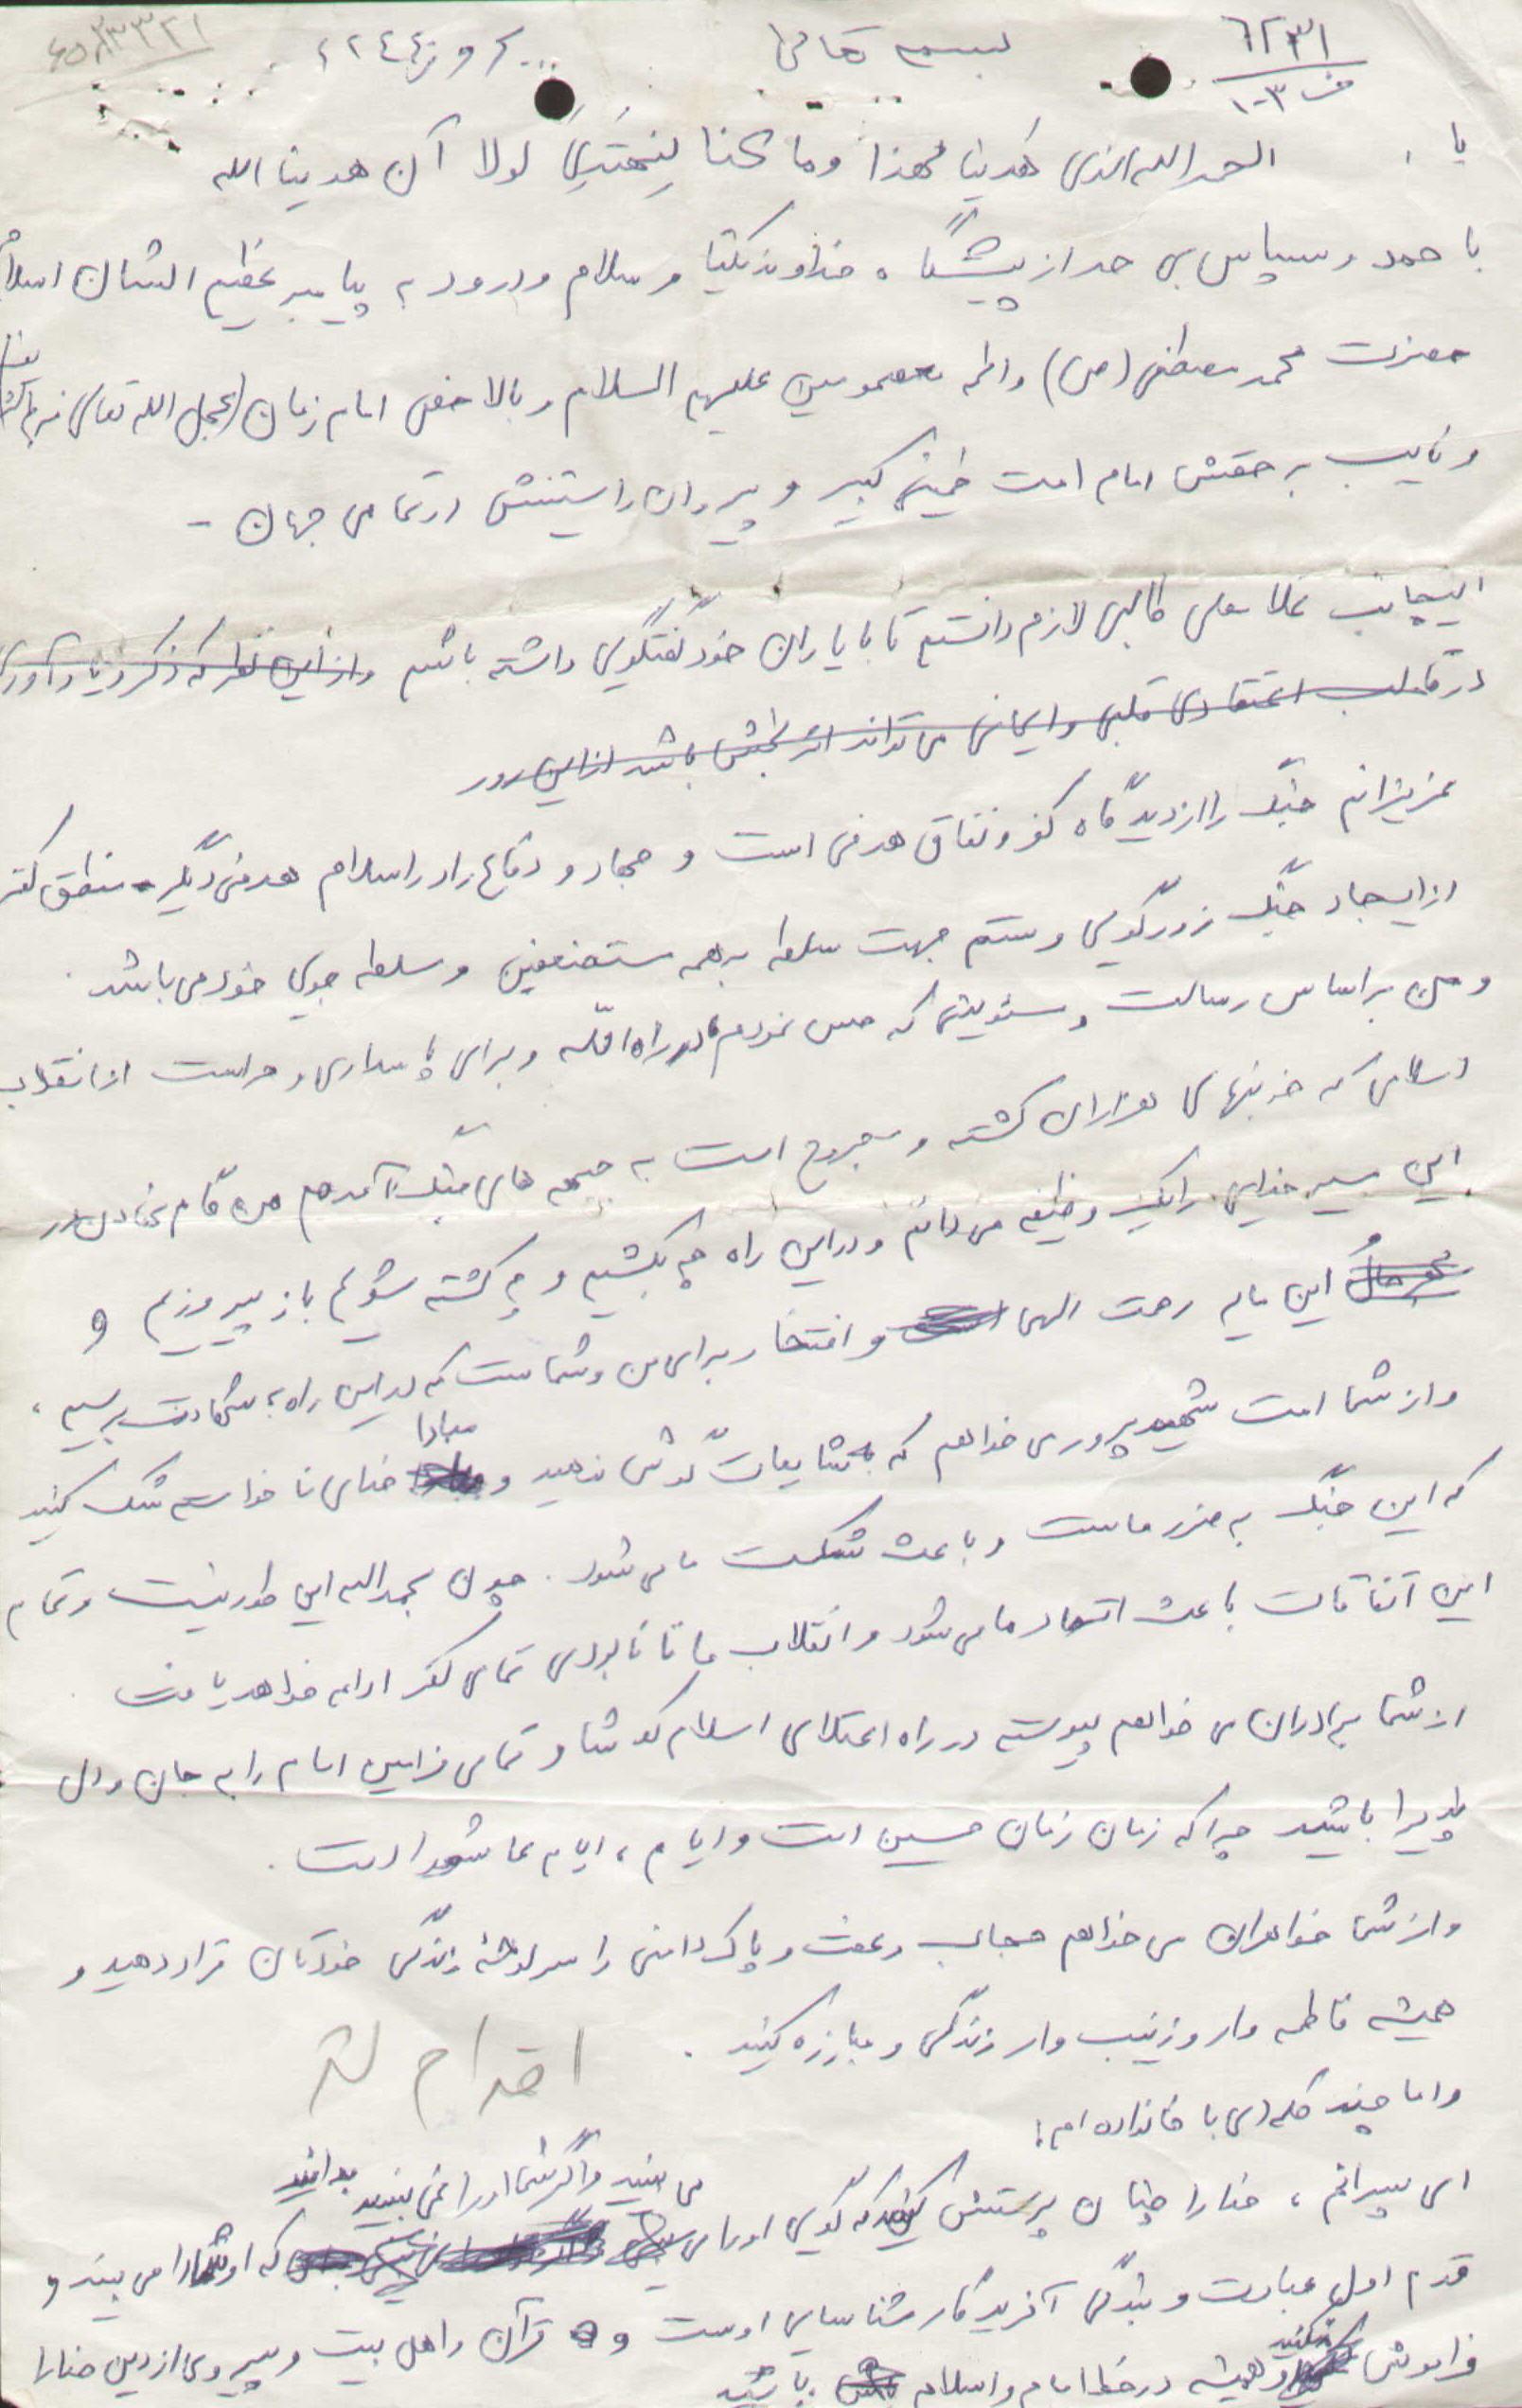 ۶۲۳۱ بسمه تعالی
ف ۱۰۳
یا الحمد الله الذی هدینا لهذا وما کنا لنهتدی لولا آن هدینا الله
با حمد و سپاس بی حد از پیشگاه خداوند یکتا و سلام و درود به پیامبر عظیم الشان اسلام
حضرت محمد مصطفی (ص) وائمه معصومین علیهم السلام و بالاخص امام زمان (عجل الله تعالی فرجه
و نایب برحقش امام امت خمینی کبیر و پیروان راستینش در تمامی جهان -
اینجانب غلامعلی طالبی لازم دانستم تا با یاران خود گفتگوی داشته باشم وازاین نظر که ذکر و یادآوری
در قالب اعتقادی قلبی و ایمانی می تواند اثر بخش باشد از این رو در
عزیزانم جنگ را از دیدگاه کفر و نفاق هدفی است و جهاد و دفاع را در اسلام هدفی دیگر منطق کفر
از ایجاد جنگ زورگویی و ستم جهت سلطه بر همه مستضعفین و سلطه جوی خود می باشد .
و من بر اساس رسالت و مسئولیتی که حس نمودم در راه الله و برای پاسداری و حراست از انقلاب
اسلامی که خونبهای هزاران کشته و مجروح است به جبهه های جنگ آمدم من گام نهادن در
این مسیر خدایی را یک وظیفه می دانم و در این راه چه بکشیم و چه کشته شویم باز پیروزیم و
بهر حال این مایه رحمت الهی و افتخار برای من و شماست که در این راه به شهادت برسیم ،
و از شما امت شهید پرور می خواهم که به شایعات گوش ندهید و مبادا خدای نا خواسته شک کنید
که این جنگ به ضرر ماست و باعث شکست ما می شود . چون بحمد الله این طور نیست و تمام
این اتفاقات باعث اتحاد ما می شود و انقلاب ما تا نابودی تمامی کفر ادامه خواهد یافت .
از شما برادران می خواهم پیوسته در راه اعتلای اسلام کوشا و تمامی فرامین امام را به جان و دل
پذیرا باشید چرا که زمان زمان حسین است و ایام ، ایام عاشورا است .
و از شما خواهران می خواهم حجاب و عفت و پاک دامنی را سرلوحه زندگی خودتان قرار دهید و
همیشه فاطمه وار و زینب وار زندگی و مبارزه کنید .
اقدام شد
و اما چند کلمه ای با خانواده ام !
ای پسرانم ، خدا را چنان پرستش کنید که گویی او را می بینید و اگر شما او را نمی بینید بدانید که او شما را می بیند و
قدم اول عبادت و بندگی آفریدگار شناسایی اوست و قرآن و اهل بیت و پیروی از دین خدا را
فراموش نکنید و همیشه در خط امام و اسلام باشید